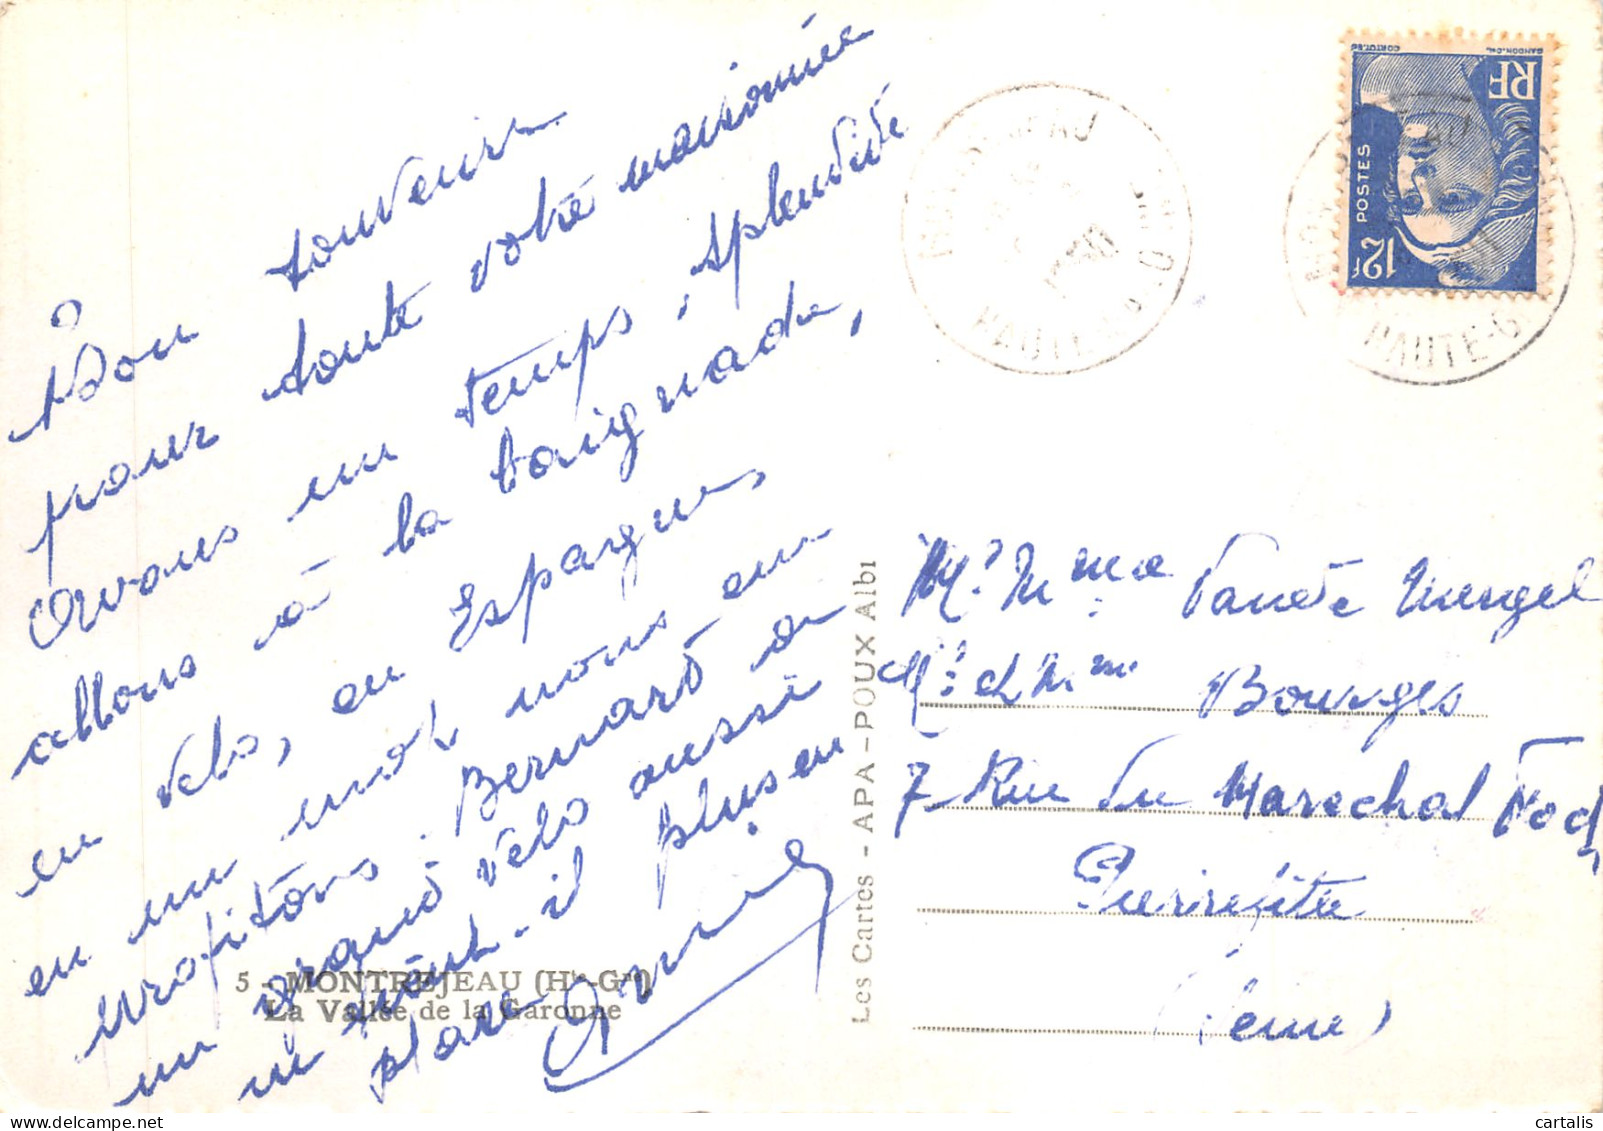 Bon souvenir
pour toute votre maisonnée
Avons un temps, splendide
allons à la baignade,
en velo, en Espagne,
en un mot nous en
profitons. Bernard a
un grand velo aussi
ne tient-il plus en
place.
5 - MONTREJEAU (Hte-Gne)
La Vallée de la Garonne
Les Cartes - APA-POUX Albi
RF
POSTES
12f
GANDON-DEL.
CORTOT-SC
HAUTE-G
Mr Mme
Mr et Mme Bourges
7 Rue du Marechal Foch
Pierrefitte
(Seine)
cartalis
delcampe.net